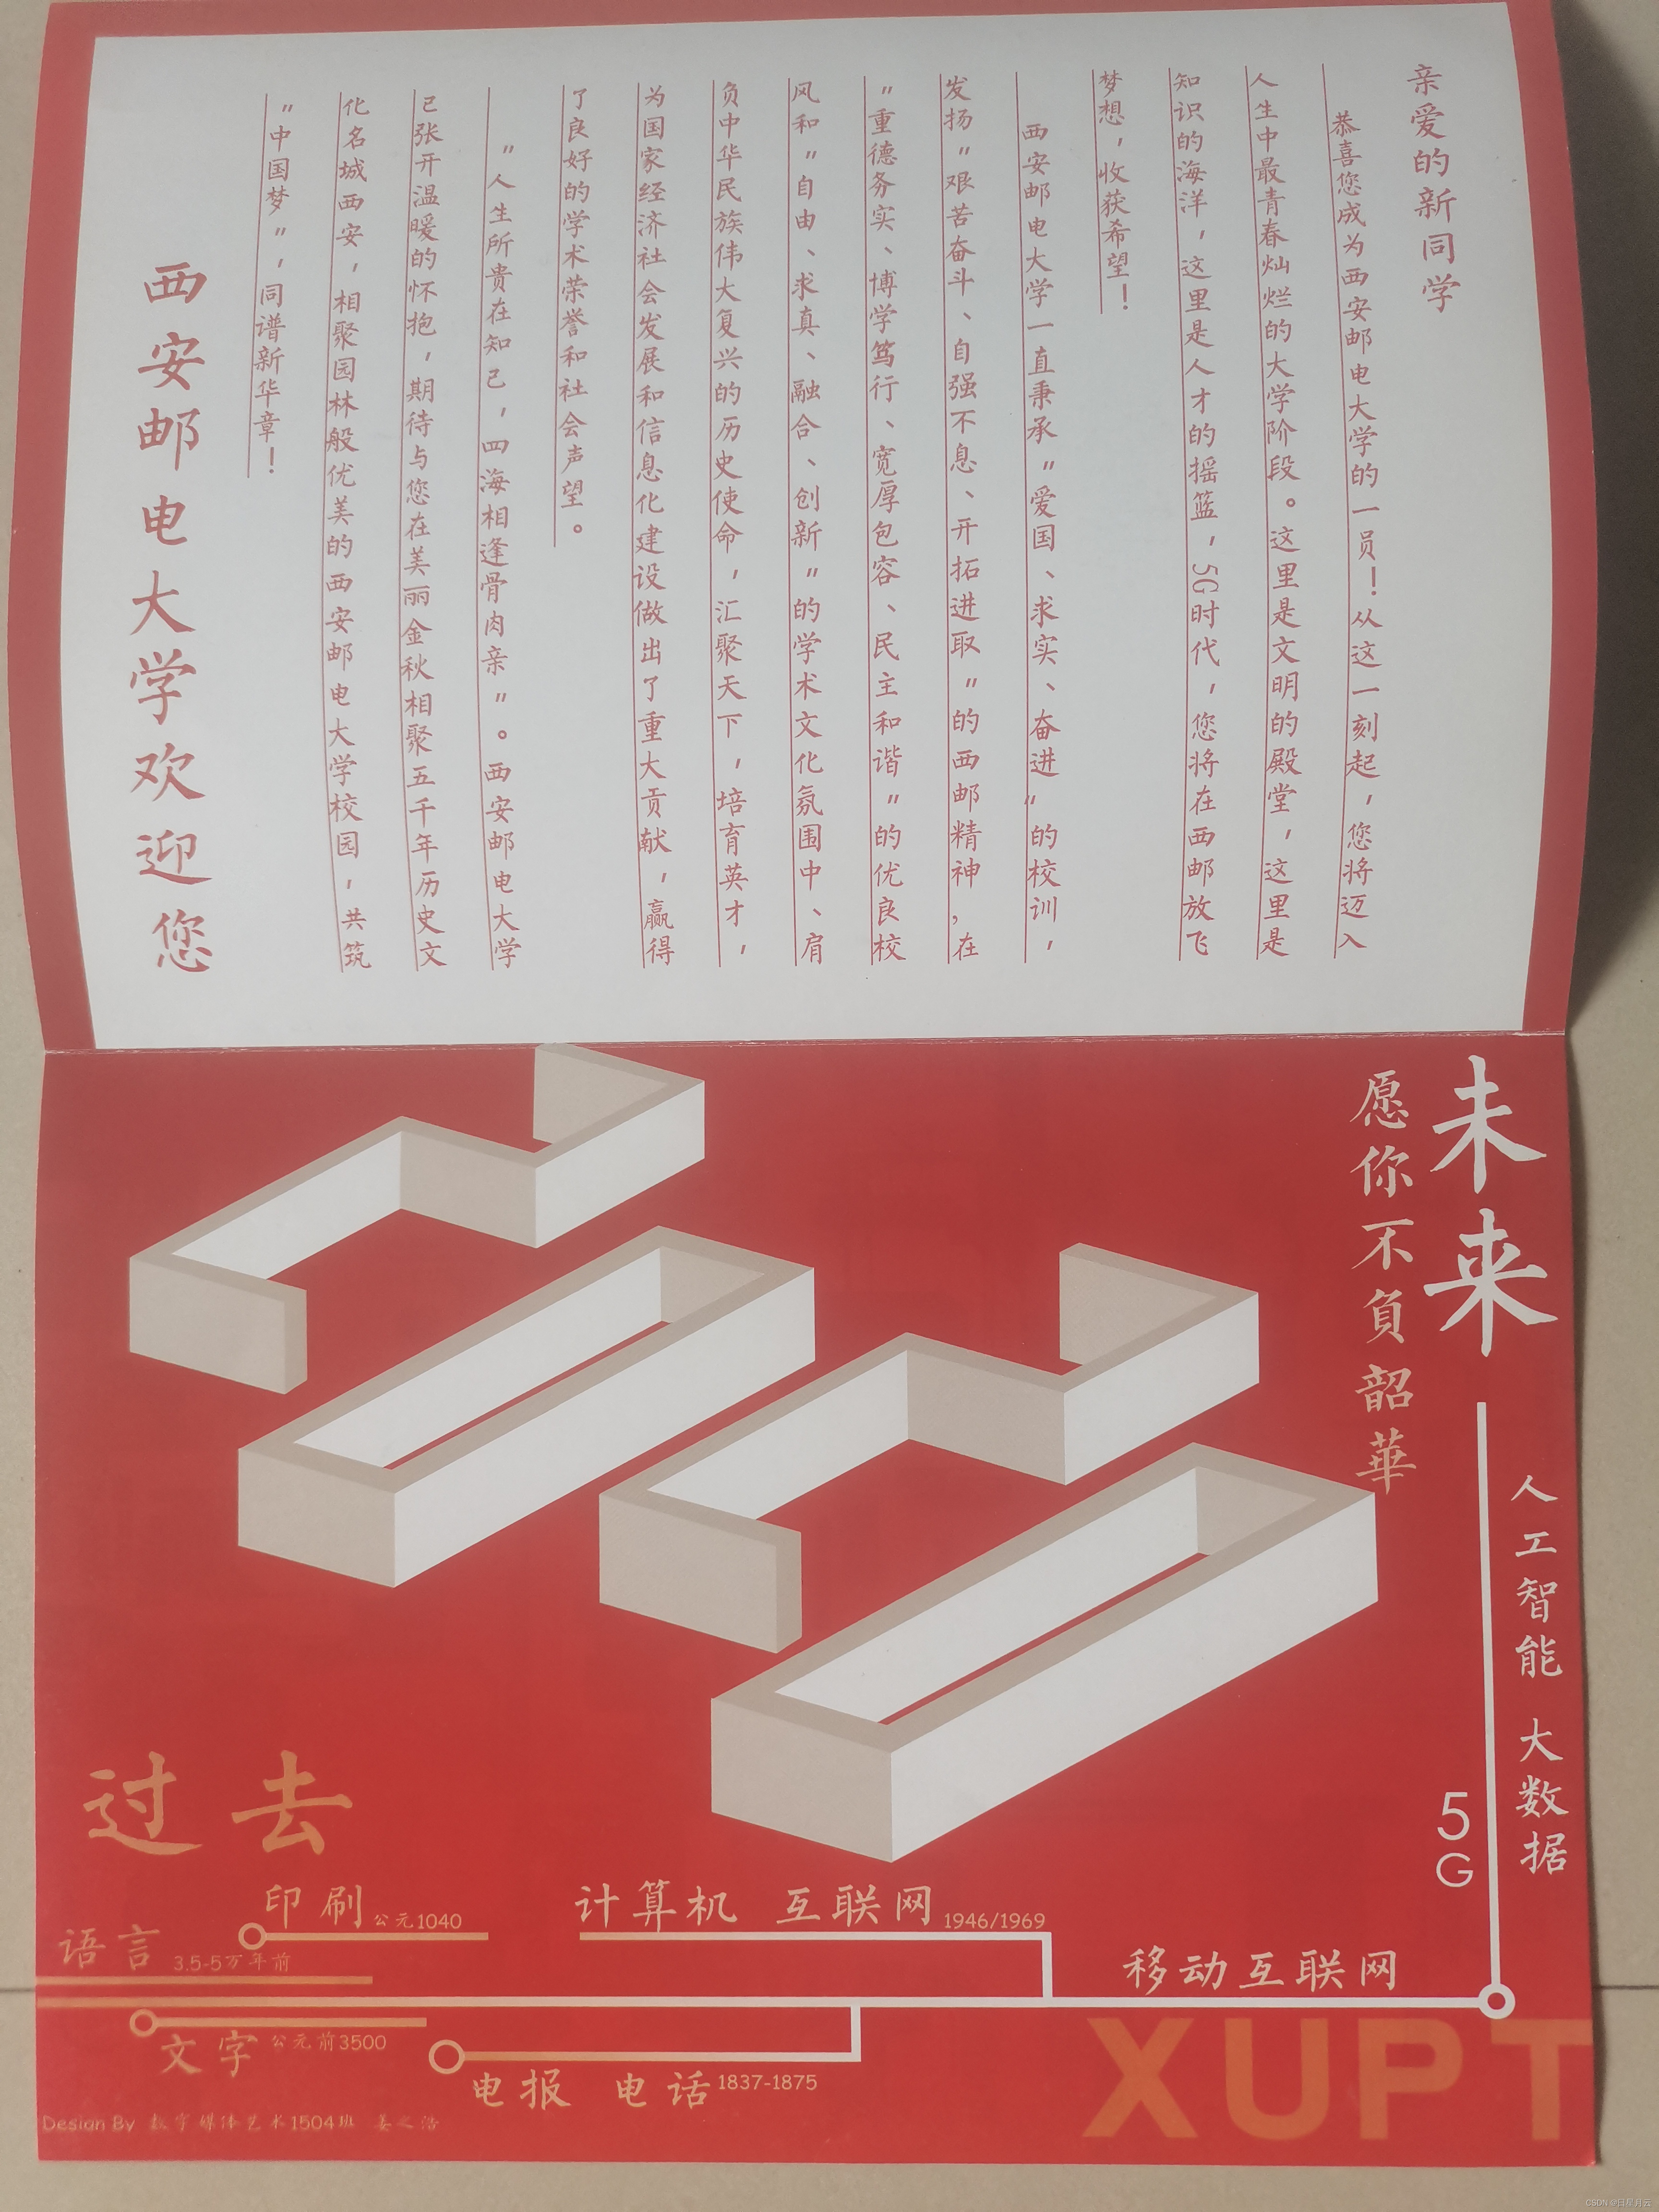 亲爱的新同学
恭喜您成为西安邮电大学的一员！从这一刻起，您将迈入
人生中最青春灿烂的大学阶段。这里是文明的殿堂，这里是
知识的海洋，这里是人才的摇篮，5G时代，您将在西邮放飞
梦想，收获希望！
西安邮电大学一直秉承"爱国、求实、奋进"的校训，
发扬"艰苦奋斗、自强不息、开拓进取"的西邮精神，在
"重德务实、博学笃行、宽厚包容、民主和谐"的优良校
风和"自由、求真、融合、创新"的学术文化氛围中、肩
负中华民族伟大复兴的历史使命，汇聚天下，培育英才，
为国家经济社会发展和信息化建设做出了重大贡献，赢得
了良好的学术荣誉和社会声望。
"人生所贵在知己，四海相逢骨肉亲"。西安邮电大学
已张开温暖的怀抱，期待与您在美丽金秋相聚五千年历史文
化名城西安，相聚园林般优美的西安邮电大学校园，共筑
"中国梦"，同谱新华章！
西安邮电大学欢迎您
未来
愿你不負韶華
人工智能 大数据
5G
过去
印刷 公元1040
计算机 互联网 1946/1969
语言 3.5-5万年前
移动互联网
文字 公元前3500
电报 电话 1837-1875
XUPT
Design By 数字媒体艺术1504班 姜之浩
CSDN @日星月云